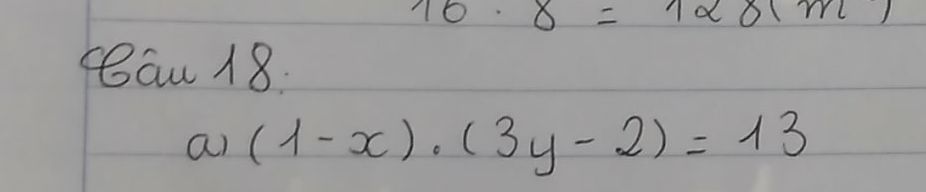 16 . 8 = 128 (m
Câu 18:
a) (1 - x) . (3y - 2) = 13